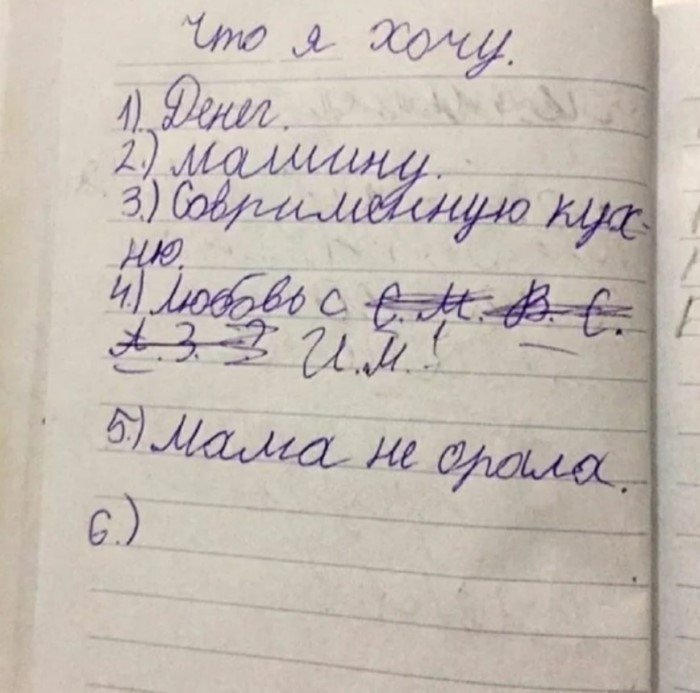 Что я хочу.
1). Денег.
2.) машину.
3.) Соврименную кух-
ню.
4.) Любовь с С. М. В. С.
А. З. И. М.!
5.) Мама не орала.
6.)